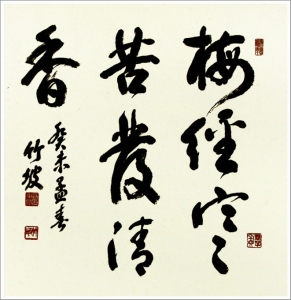 梅經寒
苦發清
香
癸未孟春
竹坡